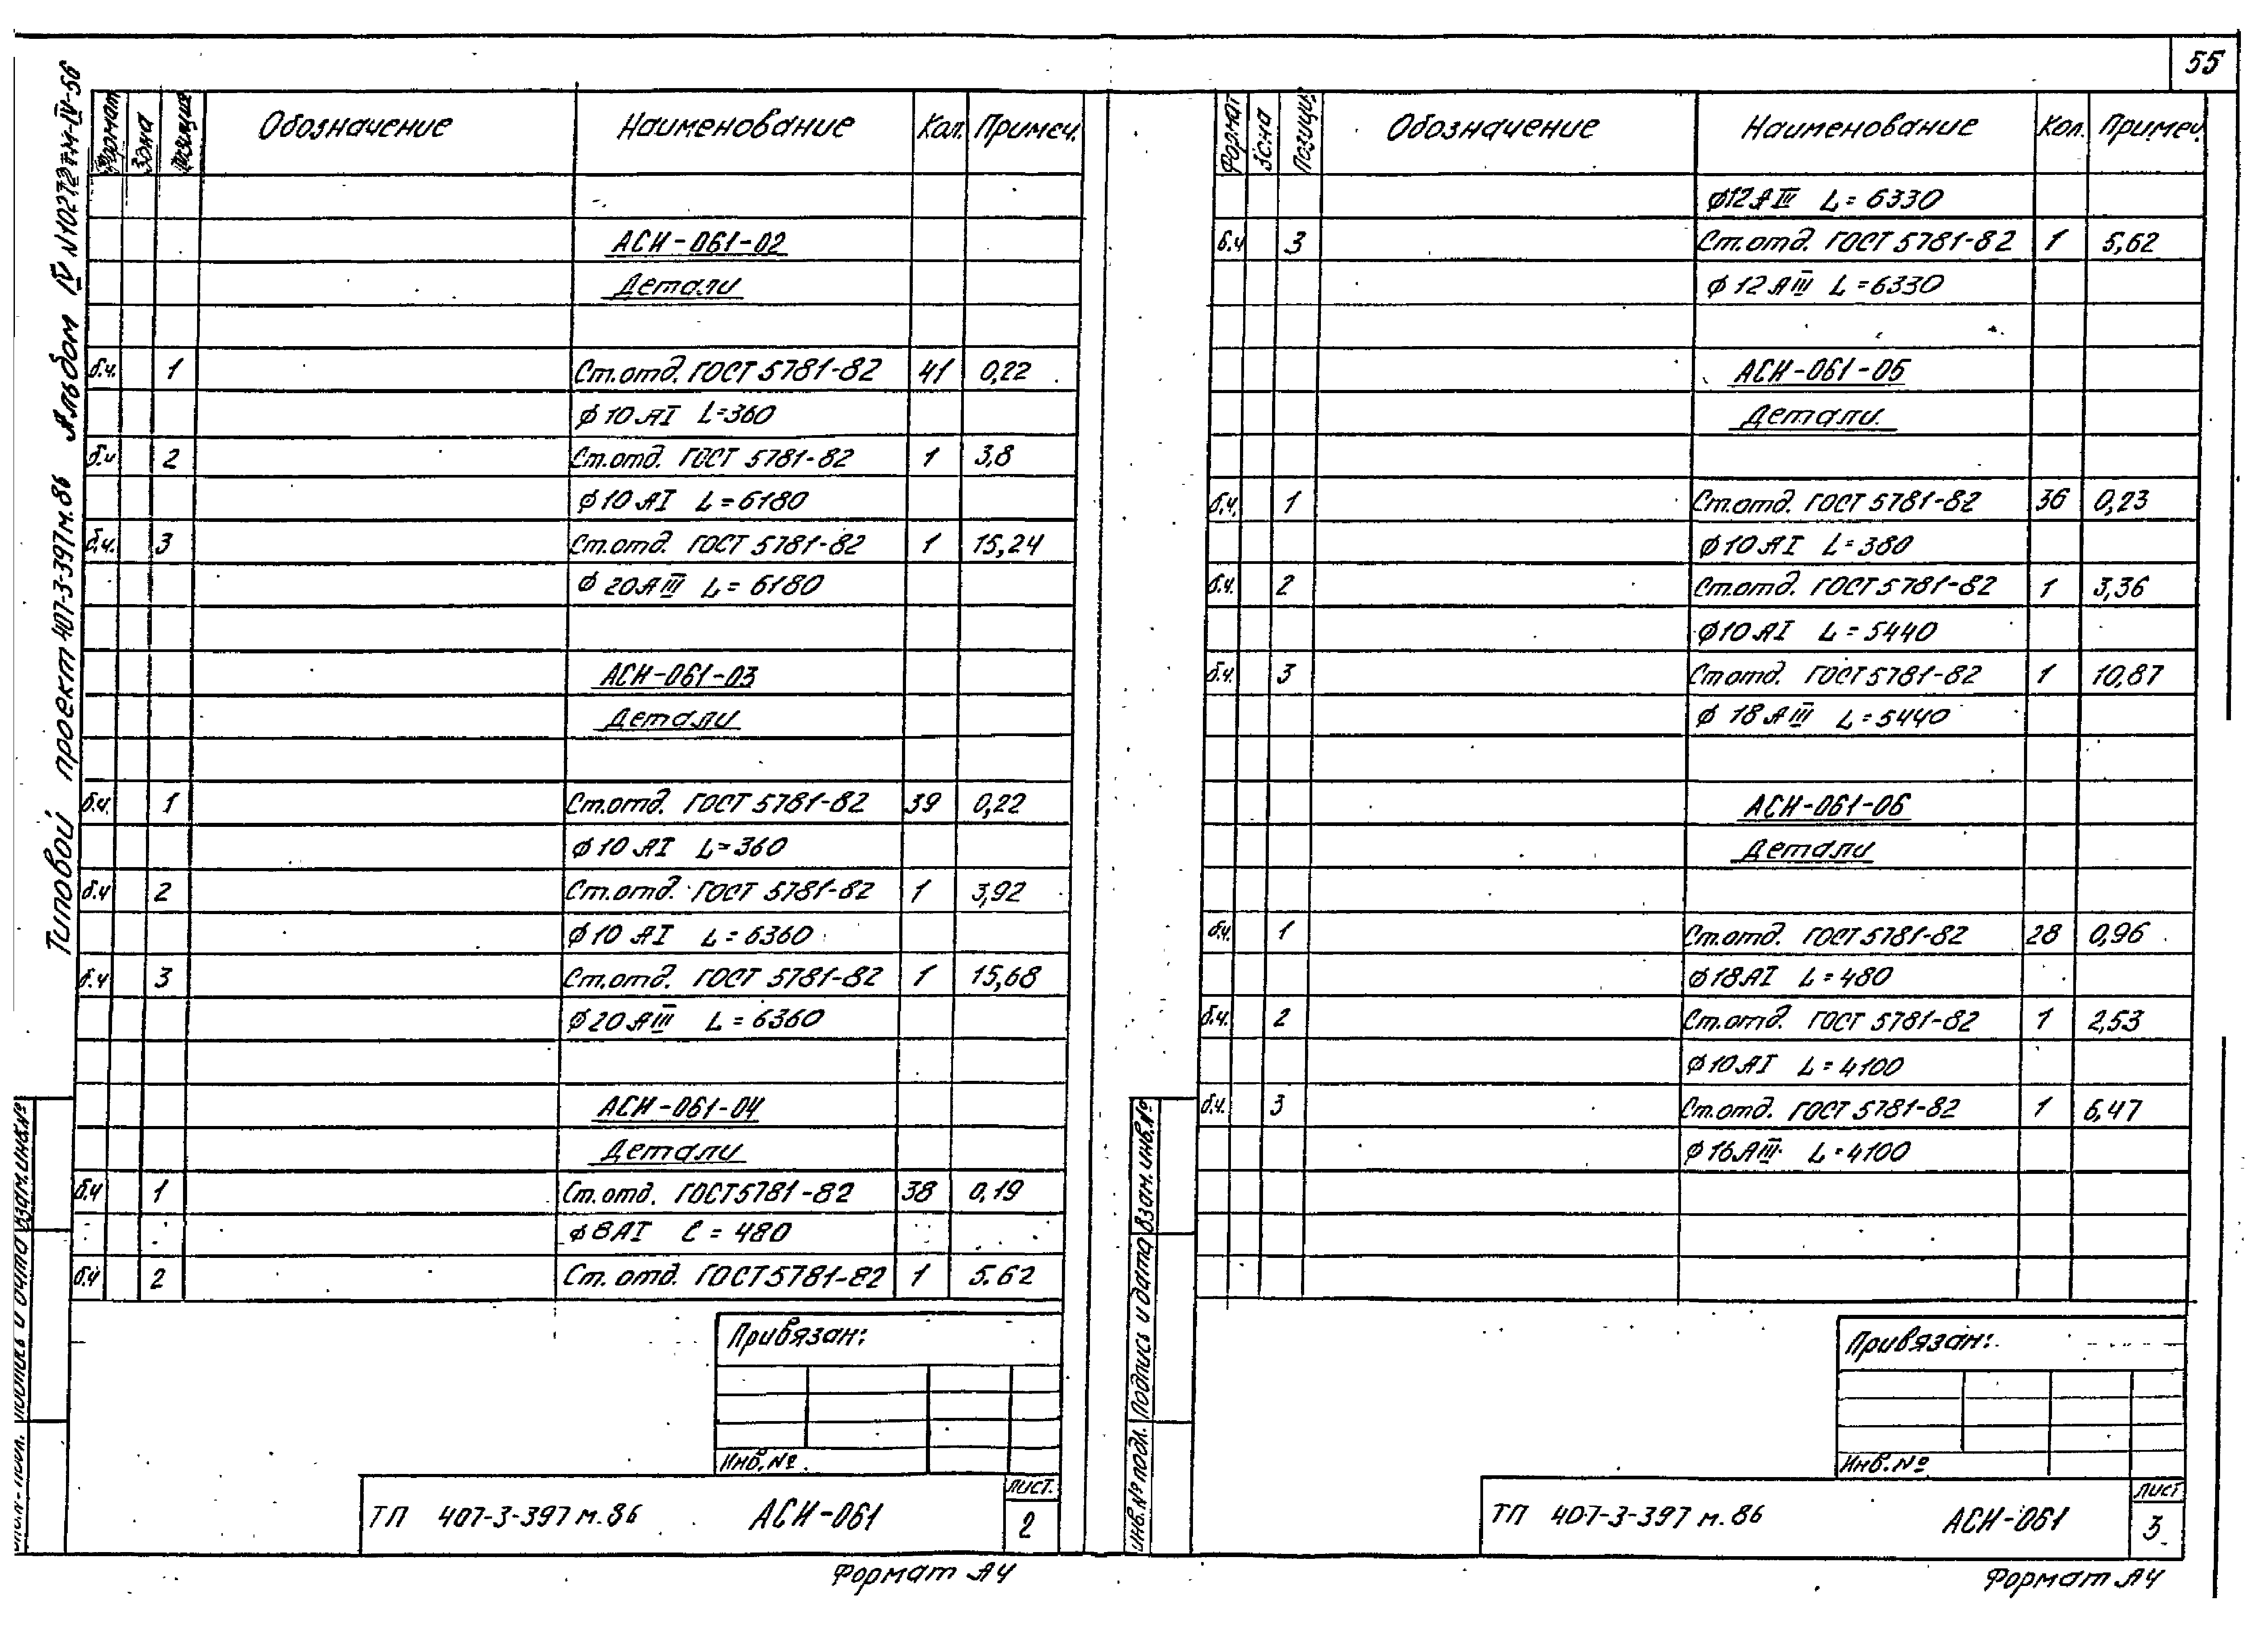 55
Типовой проект 407-3-397м.86 Альбом IV N10272тм-IV-56
Формат Зона Позиция Обозначение Наименование Кол. Примеч.
АСИ-061-02
Детали
б.ч. 1 Ст.отд. ГОСТ 5781-82 41 0,22
ϕ10 АI L=360
б.ч 2 Ст.отд. ГОСТ 5781-82 1 3,8
ϕ10 АI L=6180
б.ч. 3 Ст.отд. ГОСТ 5781-82 1 15,24
ϕ 20АIII L=6180
АСИ-061-03
Детали
б.ч. 1 Ст.отд. ГОСТ 5781-82 39 0,22
ϕ10 АI L=360
б.ч 2 Ст.отд. ГОСТ 5781-82 1 3,92
ϕ10 АI L=6360
б.ч 3 Ст.отд. ГОСТ 5781-82 1 15,68
ϕ20АIII L=6360
АСИ-061-04
Детали
б.ч 1 Ст.отд. ГОСТ 5781-82 38 0,19
ϕ8АI ℓ=480
б.ч 2 Ст.отд. ГОСТ 5781-82 1 5.62
Привязан:
Инв.№
ТП 407-3-397м.86 АСИ-061
лист.
2
Формат А4
подпись и дата взам.инв.№
Формат Зона Позиция Обозначение Наименование Кол. Примеч.
ϕ12АIII L=6330
б.ч 3 Ст.отд. ГОСТ 5781-82 1 5,62
ϕ 12АIII L=6330
АСИ-061-05
Детали.
б.ч. 1 Ст.отд. ГОСТ 5781-82 36 0,23
ϕ10АI L=380
б.ч. 2 Ст.отд. ГОСТ 5781-82 1 3,36
ϕ10АI L=5440
б.ч. 3 Ст.отд. ГОСТ 5781-82 1 10,87
ϕ 18АIII L=5440
АСИ-061-06
Детали
б.ч. 1 Ст.отд. ГОСТ 5781-82 28 0,96
ϕ18АI L=480
б.ч. 2 Ст.отд. ГОСТ 5781-82 1 2,53
ϕ10АI L=4100
б.ч. 3 Ст.отд. ГОСТ 5781-82 1 6,47
ϕ16АIII L=4100
Привязан:
Инв.№
ТП 407-3-397м.86 АСИ-061
лист
3
Формат А4
инв.№ подл. Подпись и дата Взам.инв.№